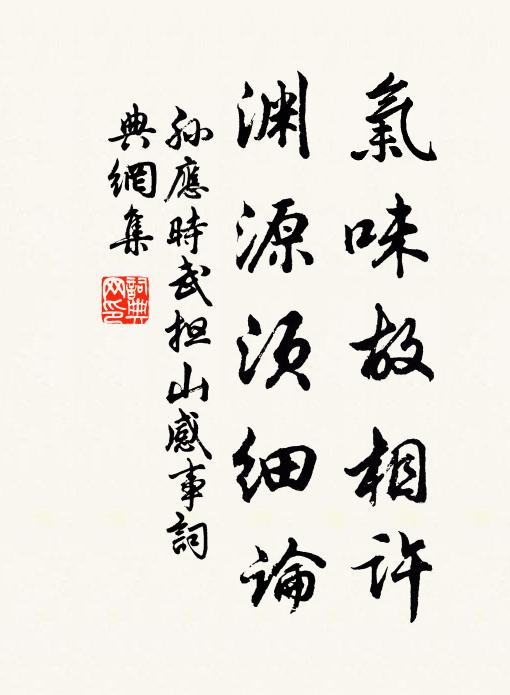 氣味故相許
渊源須細論
孙應時武担山感事詞
典網集
詞典网印